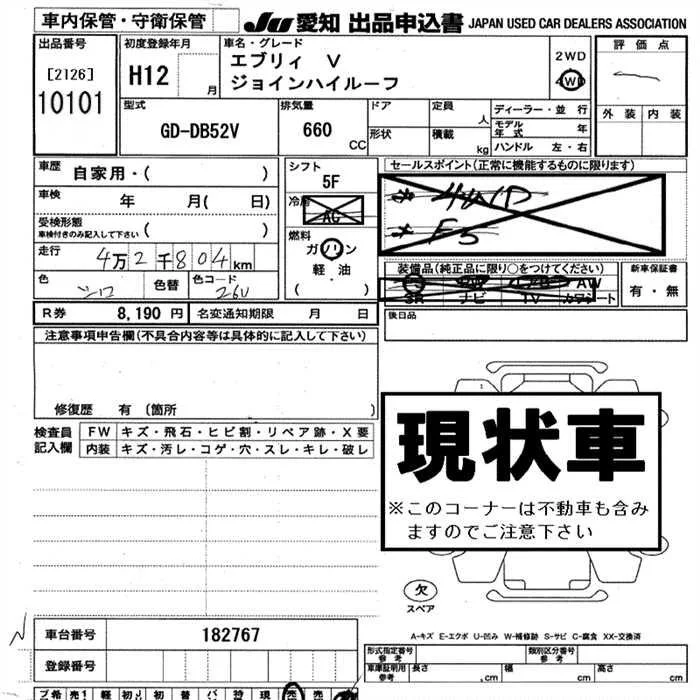 車内保管・守衛保管
JU 愛知 出品申込書 JAPAN USED CAR DEALERS ASSOCIATION
出品番号
[2126]
10101
初度登録年月
H12 月
車名・グレード
エブリィ V
ジョインハイルーフ
2WD
4WD
評価点
外装 内装
型式
GD-DB52V
排気量
660 CC
ドア
形状
定員 人
積載 kg
ディーラー・並行
モデル年式 年
ハンドル 左・右
車歴 自家用・( )
車検 年 月( 日)
受検形態
車検付きのみ記入して下さい ( )
走行 4万2千804km
色 シロ 色替 色コード 26U
シフト
5F
冷房
AC
燃料
ガソリン
軽油
( )
セールスポイント(正常に機能するものに限ります)
* 4WD
* F5
装備品(純正品に限り○をつけてください)
SR ナビ TV カワシート AW
新車保証書
有・無
後日品
R券 8,190円 名変通知期限 月 日
注意事項申告欄(不具合内容等は具体的に記入して下さい)
修復歴 有 〔箇所 〕
検査員記入欄
FW キズ・飛石・ヒビ割・リペア跡・X要
内装 キズ・汚レ・コゲ・穴・スレ・キレ・破レ
1
現状車
※このコーナーは不動車も含み
ますのでご注意下さい
欠
スペア
A-キズ E-エクボ U-凹み W-補修跡 S-サビ C-腐食 XX-交換済
車台番号 182767
登録番号
形式指定番号 参考
類別区分番号 参考
車庫証明用 参考 長さ cm 幅 cm 高さ cm